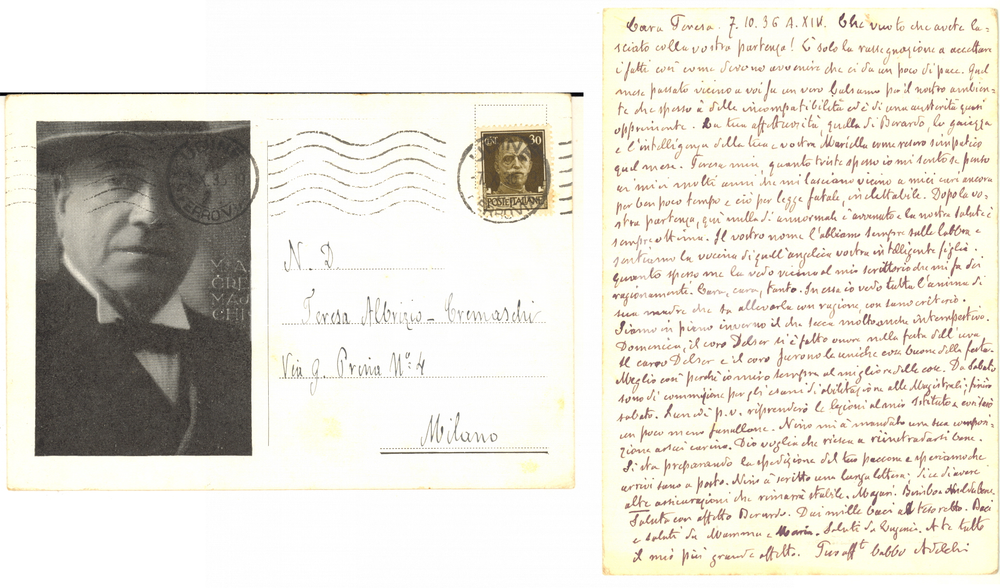 UDINE
FERROVIA
MAJ
30
POSTE ITALIANE
N. D.
Teresa Albrizio - Cremaschi
Via G. Prina Nº 4
Milano
Cara Teresa. 7.10.36 A. XIV. Che vuoto che avete la=
sciato colla vostra partenza! È solo la rassegnazione a accettare
i fatti così come devono avvenire che ci da un poco di pace. Quel
mese passato vicino a voi fu un vero balsamo per il nostro ambien=
te che spesso è della incompatibilità ed è di una austerità quasi
opprimente. La tua affettuosità, quella di Berardo, la gaiezza
e l'intelligenza della tua e vostra Mariella come resero simpatico
quel mese. Teresa mia, quanto triste spesso io mi sento se penso
ai miei molti anni che mi lasciano vicino a miei cari ancora
per ben poco tempo e ciò per legge fatale, ineluttabile. Dopo la vo=
stra partenza, qui nulla di annormale è avvenuto e la nostra salute è
sempre ottima. Il vostro nome l'abbiamo sempre sulle labbra e
sentiamo la vocina di quell'angelica vostra intelligente figlia.
Quanto spesso me la vedo vicino al mio scrittoio che mi fa dei
ragionamenti. Cara, cara, tanto. In essa io vedo tutta l'anima di
sua madre che sa allevarla con ragione, con sano criterio.
Siamo in pieno inverno il che secca molto anche intempestivo.
Domenica, il coro Delser si è fatto onore nella festa dell'uva.
Il carro Delser e il coro furono le uniche cose buone della festa.
Meglio così perchè io miro sempre al migliore delle cose. Da sabato
sono di commissione per gli esami di abilitazione alle Magistrali; finirò
sabato. Lunedì p. v. riprenderò le lezioni al mio Istituto e così sarò
un poco meno fanullone. Nino mi à mandato una sua composi=
zione assai carina. Dio voglia che riesca a rientradarsi bene.
Si sta preparando la spedizione del tuo paccone e speriamo che
arrivi sano a posto. Nino à scritto una lunga lettera; dice di avere
alte assicurazioni che rimarrà stabile. Magari.
Saluta con affetto Berardo. Dai mille baci al tesoretto. Baci
e saluti da Mamma e Maria. Saluti da Eugenia. A te tutto
il mio più grande affetto. Tuo aff.º babbo Adelchi